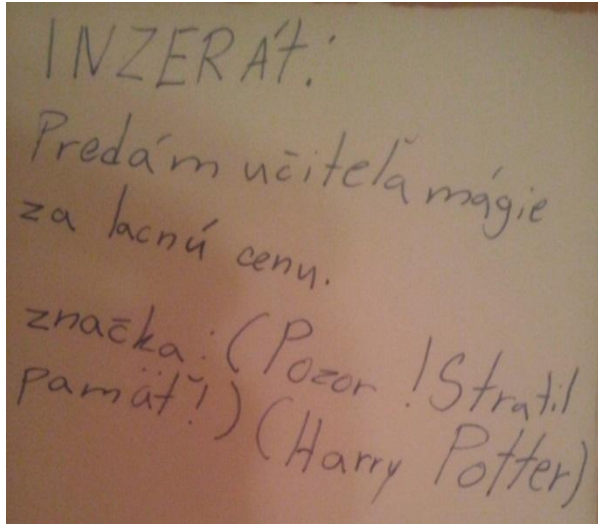 INZERÁT:
Predám učiteľa mágie
za lacnú cenu.
značka: (Pozor ! Stratil
pamäť!) (Harry Potter)